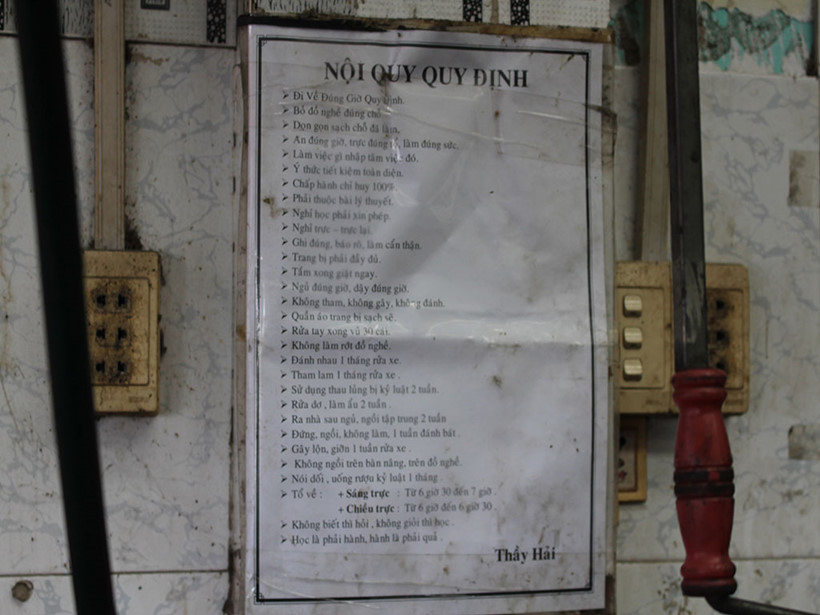 NỘI QUY QUY ĐỊNH
➢ Đi Về Đúng Giờ Quy Định.
➢ Bỏ đồ nghề đúng chỗ
➢ Dọn gọn sạch chỗ đã làm.
➢ Ăn đúng giờ, trực đúng tổ, làm đúng sức.
➢ Làm việc gì nhập tâm việc đó.
➢ Ý thức tiết kiệm toàn diện.
➢ Chấp hành chỉ huy 100%.
➢ Phải thuộc bài lý thuyết.
➢ Nghỉ học phải xin phép.
➢ Nghỉ trực – trực lại.
➢ Ghi đúng, báo rõ, làm cẩn thận.
➢ Trang bị phải đầy đủ.
➢ Tắm xong giặt ngay.
➢ Ngủ đúng giờ, dậy đúng giờ.
➢ Không tham, không gây, không đánh.
➢ Quần áo trang bị sạch sẽ.
➢ Rửa tay xong vũ 30 cái.
➢ Không làm rớt đồ nghề.
➢ Đánh nhau 1 tháng rửa xe.
➢ Tham lam 1 tháng rửa xe .
➢ Sử dụng thau lủng bị kỷ luật 2 tuần.
➢ Rửa dơ , làm ẩu 2 tuần .
➢ Ra nhà sau ngủ, ngồi tập trung 2 tuần
➢ Đứng, ngồi, không làm, 1 tuần đánh bát .
➢ Gây lộn, giỡn 1 tuần rửa xe .
➢ Không ngồi trên bàn nâng, trên đồ nghề.
➢ Nói dối , uống rượu kỷ luật 1 tháng .
➢ Tổ về : + Sáng trực : Từ 6 giờ 30 đến 7 giờ .
+ Chiều trực : Từ 6 giờ đến 6 giờ 30 .
➢ Không biết thì hỏi , không giỏi thì học .
➢ Học là phải hành, hành là phải quả .
Thầy Hải